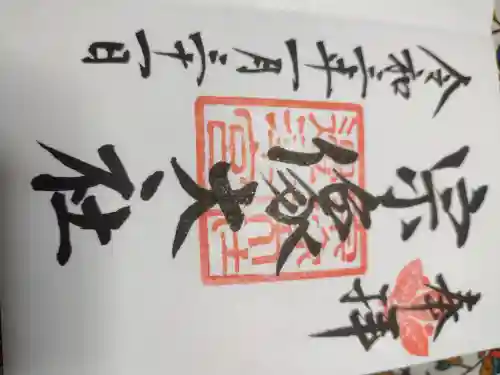 奉拝
宗像大社
令和三年一月三十一日